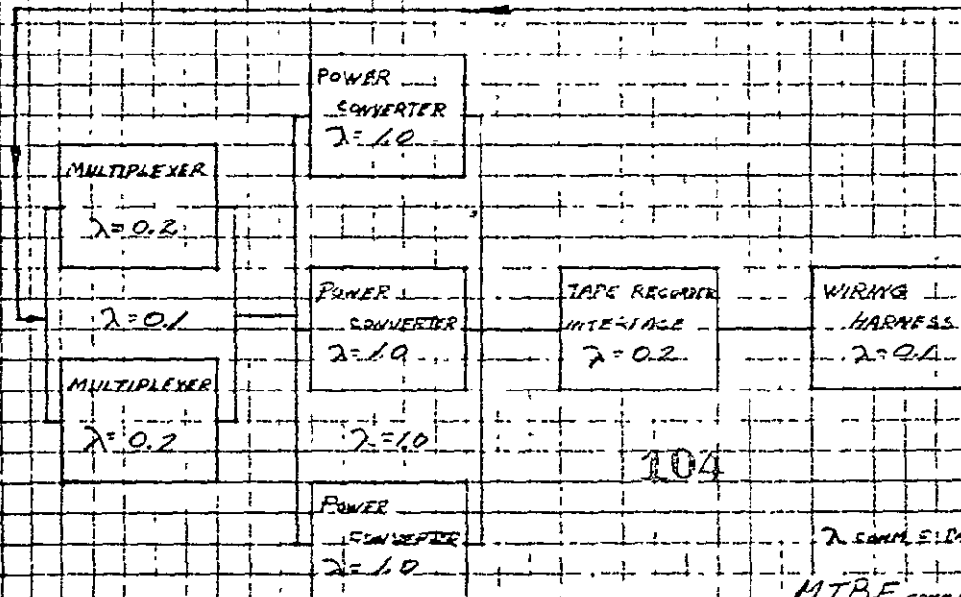 POWER
CONVERTER
λ=1.0
MULTIPLEXER
λ=0.2
λ=0.1
MULTIPLEXER
λ=0.2
POWER
CONVERTER
λ=1.0
λ=1.0
POWER
λ=1.0
TAPE RECORDER
λ=0.2
WIRING
HARNESS
104
λ COMM
MTBF